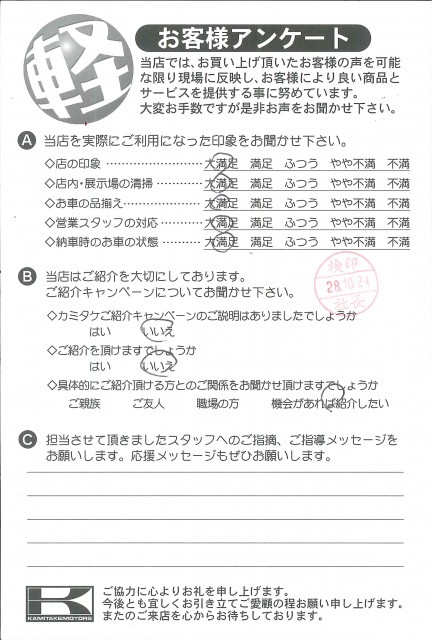 軽
お客様アンケート
当店では、お買い上げ頂いたお客様の声を可能
な限り現場に反映し、お客様により良い商品と
サービスを提供する事に努めています。
大変お手数ですが是非お声をお聞かせ下さい。
A 当店を実際にご利用になった印象をお聞かせ下さい。
◇店の印象 ………………… 大満足 満足 ふつう やや不満 不満
◇店内・展示場の清掃 ………… 大満足 満足 ふつう やや不満 不満
◇お車の品揃え………………… 大満足 満足 ふつう やや不満 不満
◇営業スタッフの対応 ………… 大満足 満足 ふつう やや不満 不満
◇納車時のお車の状態 ………… 大満足 満足 ふつう やや不満 不満
B 当店はご紹介を大切にしております。
ご紹介キャンペーンについてお聞かせ下さい。
検印
28.10.24
社長
◇カミタケご紹介キャンペーンのご説明はありましたでしょうか
はい いいえ
◇ご紹介を頂けますでしょうか
はい いいえ
◇具体的にご紹介頂ける方とのご関係をお聞かせ頂けますでしょうか
ご親族 ご友人 職場の方 機会があれば紹介したい
C 担当させて頂きましたスタッフへのご指摘、ご指導メッセージを
お願いします。応援メッセージもぜひお願いします。
K
KAMITAKEMOTORS
ご協力に心よりお礼を申し上げます。
今後とも宜しくお引き立てご愛顧の程お願い申し上げます。
またのご来店を心からお待ちしております。